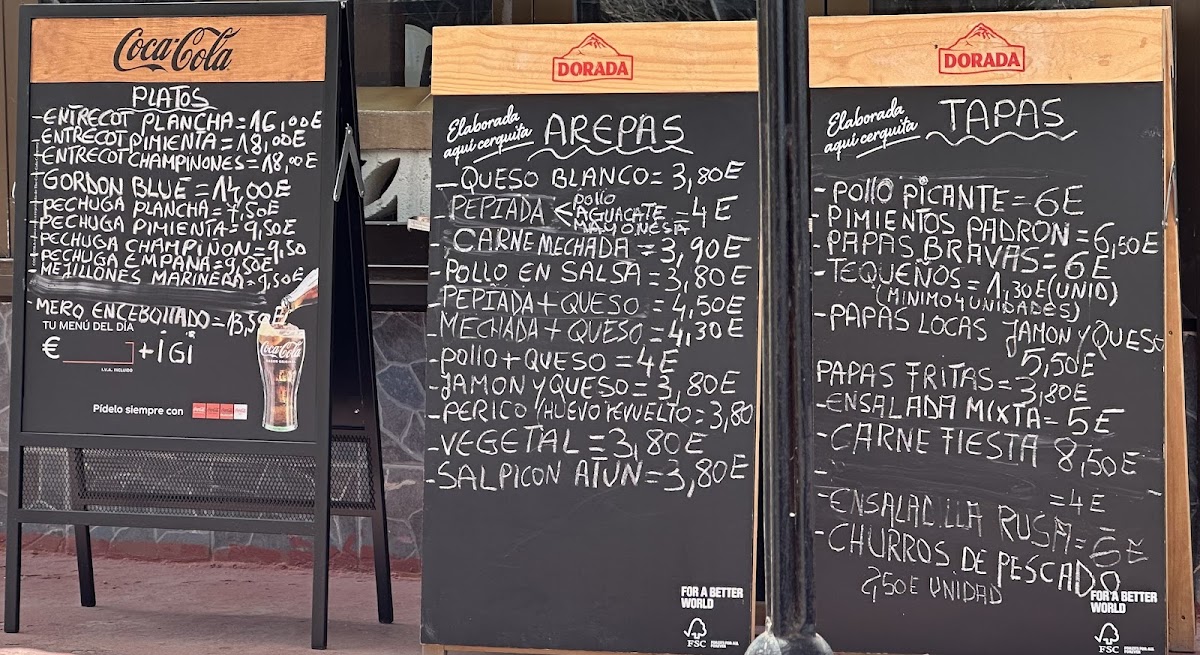 Coca-Cola
PLATOS
-ENTRECOT PLANCHA=16,00E
ENTRECOT PIMIENTA=18,00E
-ENTRECOT CHAMPINONES=18,00E
GORDON BLUE=14,00E
-PECHUGA PLANCHA=7,50E
PECHUGA PIMIENTA=9,50E
PECHUGA CHAMPIÑON=9,50
PECHUGA EMPANA=9,50E
-MEJILLONES MARINERA=9,50E
-MERO ENCEBOLLADO=13,50
TU MENÚ DEL DÍA
€ +IGI
I.V.A. INCLUIDO
Coca-Cola
Pídelo siempre con
DORADA
Elaborada
aquí cerquita
AREPAS
-QUESO BLANCO=3,80E
-PEPIADA < pollo
AGUACATE =4E
MAYONESA
CARNE MECHADA=3,90E
-POLLO EN SALSA=3,80E
-PEPIADA+QUESO=4,50E
-MECHADA+QUESO=4,30E
-pollo+QUESO=4E
-JAMON Y QUESO=3,80E
-PERICO/HUEVO REVUELTO=3,80
-VEGETAL=3,80E
-SALPICON ATUN=3,80E
FOR A BETTER
WORLD
FSC
DORADA
Elaborada
aquí cerquita
TAPAS
-POLLO PICANTE=6E
-PIMIENTOS PADRON=6,50E
-PAPAS BRAVAS=6E
-TEQUEÑOS=1,30E(UNID)
(MINIMO 4 UNIDADES)
-PAPAS LOCAS JAMON Y QUESO
5,50E
PAPAS FRITAS=3,80E
-ENSALADA MIXTA=5E
-CARNE FIESTA 8,50E
-
=4E
-ENSALADILLA RUSA=5E
-CHURROS DE PESCADO
2,50E UNIDAD
FOR A BETTER
WORLD
FSC